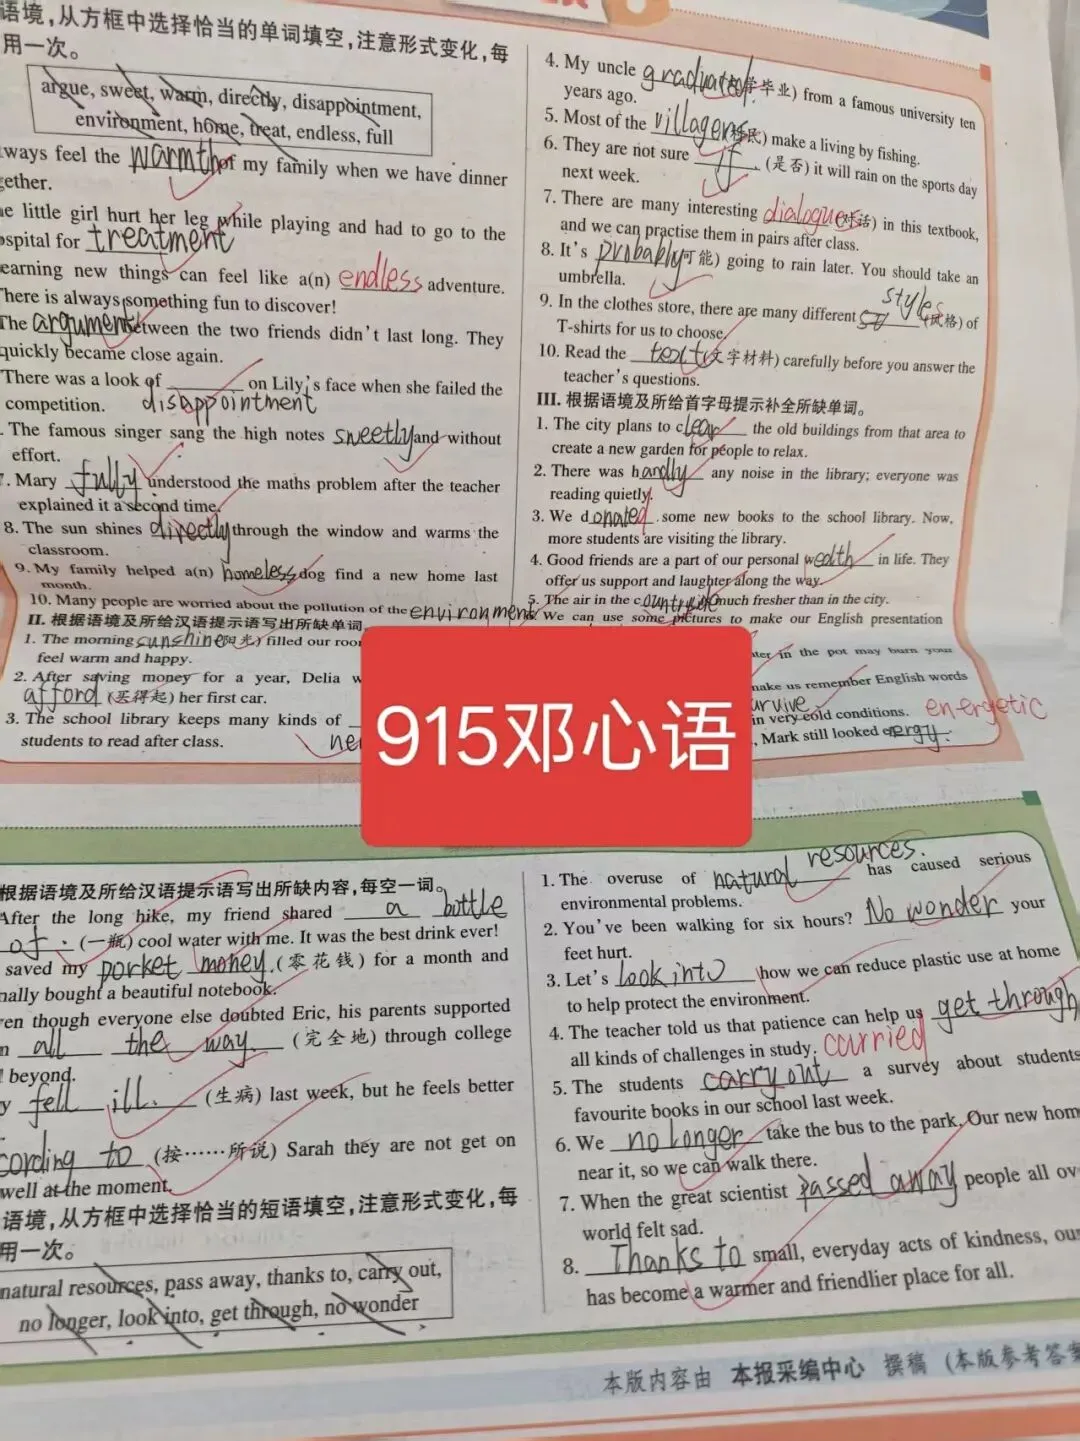 语境,从方框中选择恰当的单词填空,注意形式变化,每
用一次。
argue, sweet, warm, directly, disappointment,
environment, home, treat, endless, full
ways feel the warmth of my family when we have dinner
gether.
e little girl hurt her leg while playing and had to go to the
ospital for treatment
earning new things can feel like a(n) endless adventure.
There is always something fun to discover!
The argument between the two friends didn't last long. They
quickly became close again.
There was a look of ______ on Lily's face when she failed the
competition. disappointment
The famous singer sang the high notes sweetly and without
effort.
7. Mary fully understood the maths problem after the teacher
explained it a second time.
8. The sun shines directly through the window and warms the
classroom.
9. My family helped a(n) homeless dog find a new home last
month.
10. Many people are worried about the pollution of the environment
II. 根据语境及所给汉语提示语写出所缺单词
1. The morning sunshine (阳光) filled our roo
feel warm and happy.
2. After saving money for a year, Delia w
afford (买得起) her first car.
3. The school library keeps many kinds of
students to read after class. ne
4. My uncle graduated 毕业) from a famous university ten
years ago.
5. Most of the villagers 村民) make a living by fishing.
6. They are not sure if (是否) it will rain on the sports day
next week.
7. There are many interesting dialogues (对话) in this textbook,
and we can practise them in pairs after class.
8. It's probably 可能) going to rain later. You should take an
umbrella.
styles
9. In the clothes store, there are many different ______ (风格) of
T-shirts for us to choose.
10. Read the text (文字材料) carefully before you answer the
teacher's questions.
III. 根据语境及所给首字母提示补全所缺单词。
1. The city plans to clear the old buildings from that area to
create a new garden for people to relax.
2. There was hardly any noise in the library; everyone was
reading quietly.
3. We donated some new books to the school library. Now,
more students are visiting the library.
4. Good friends are a part of our personal wealth in life. They
offer us support and laughter along the way.
5. The air in the countryside much fresher than in the city.
We can use some pictures to make our English presentation
ter in the pot may burn your
make us remember English words
urvive in very cold conditions. energetic
, Mark still looked energy.
915邓心语
根据语境及所给汉语提示语写出所缺内容,每空一词。
After the long hike, my friend shared a bottle
of. (一瓶) cool water with me. It was the best drink ever!
saved my porket money. (零花钱) for a month and
nally bought a beautiful notebook.
en though everyone else doubted Eric, his parents supported
n all the way. (完全地) through college
beyond.
y fell ill. (生病) last week, but he feels better
cording to (按……所说) Sarah they are not get on
well at the moment.
语境,从方框中选择恰当的短语填空,注意形式变化,每
用一次。
natural resources, pass away, thanks to, carry out,
no longer, look into, get through, no wonder
1. The overuse of natural resources. has caused serious
environmental problems.
2. You've been walking for six hours? No wonder your
feet hurt.
3. Let's look into how we can reduce plastic use at home
to help protect the environment.
4. The teacher told us that patience can help us get through
all kinds of challenges in study. carried
5. The students carry out a survey about students
favourite books in our school last week.
6. We no longer take the bus to the park. Our new hom
near it, so we can walk there.
7. When the great scientist passed away people all ov
world felt sad.
8. Thanks to small, everyday acts of kindness, ou
has become a warmer and friendlier place for all.
本版内容由 本报采编中心 撰稿 (本版参考答案